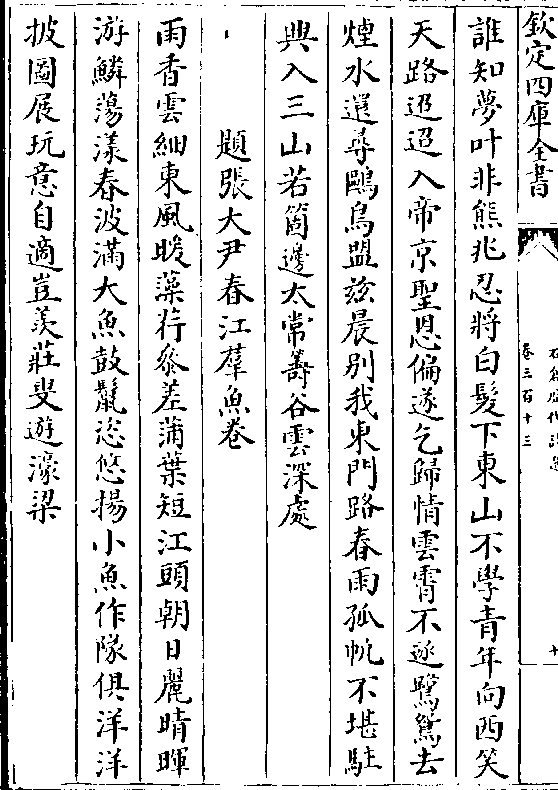 欽定四庫全書
卷三百十三
誰知夢叶非熊兆忍將白髮下東山不學青年向西笑
天路迢迢入帝京聖恩偏遂乞歸情雲霄不逐鷺鴛去
煙水還尋鷗鳥盟兹晨别我東門路春雨孤帆不堪駐
興入三山若箇邊太常壽谷雲深處
題張大尹春江羣魚卷
雨香雲細東風暖藻荇參差蒲葉短江頭朝日麗晴暉
游鱗蕩漾春波滿大魚鼓鬣恣悠揚小魚作隊俱洋洋
披圖展玩意自適豈羨莊叟遊濠梁